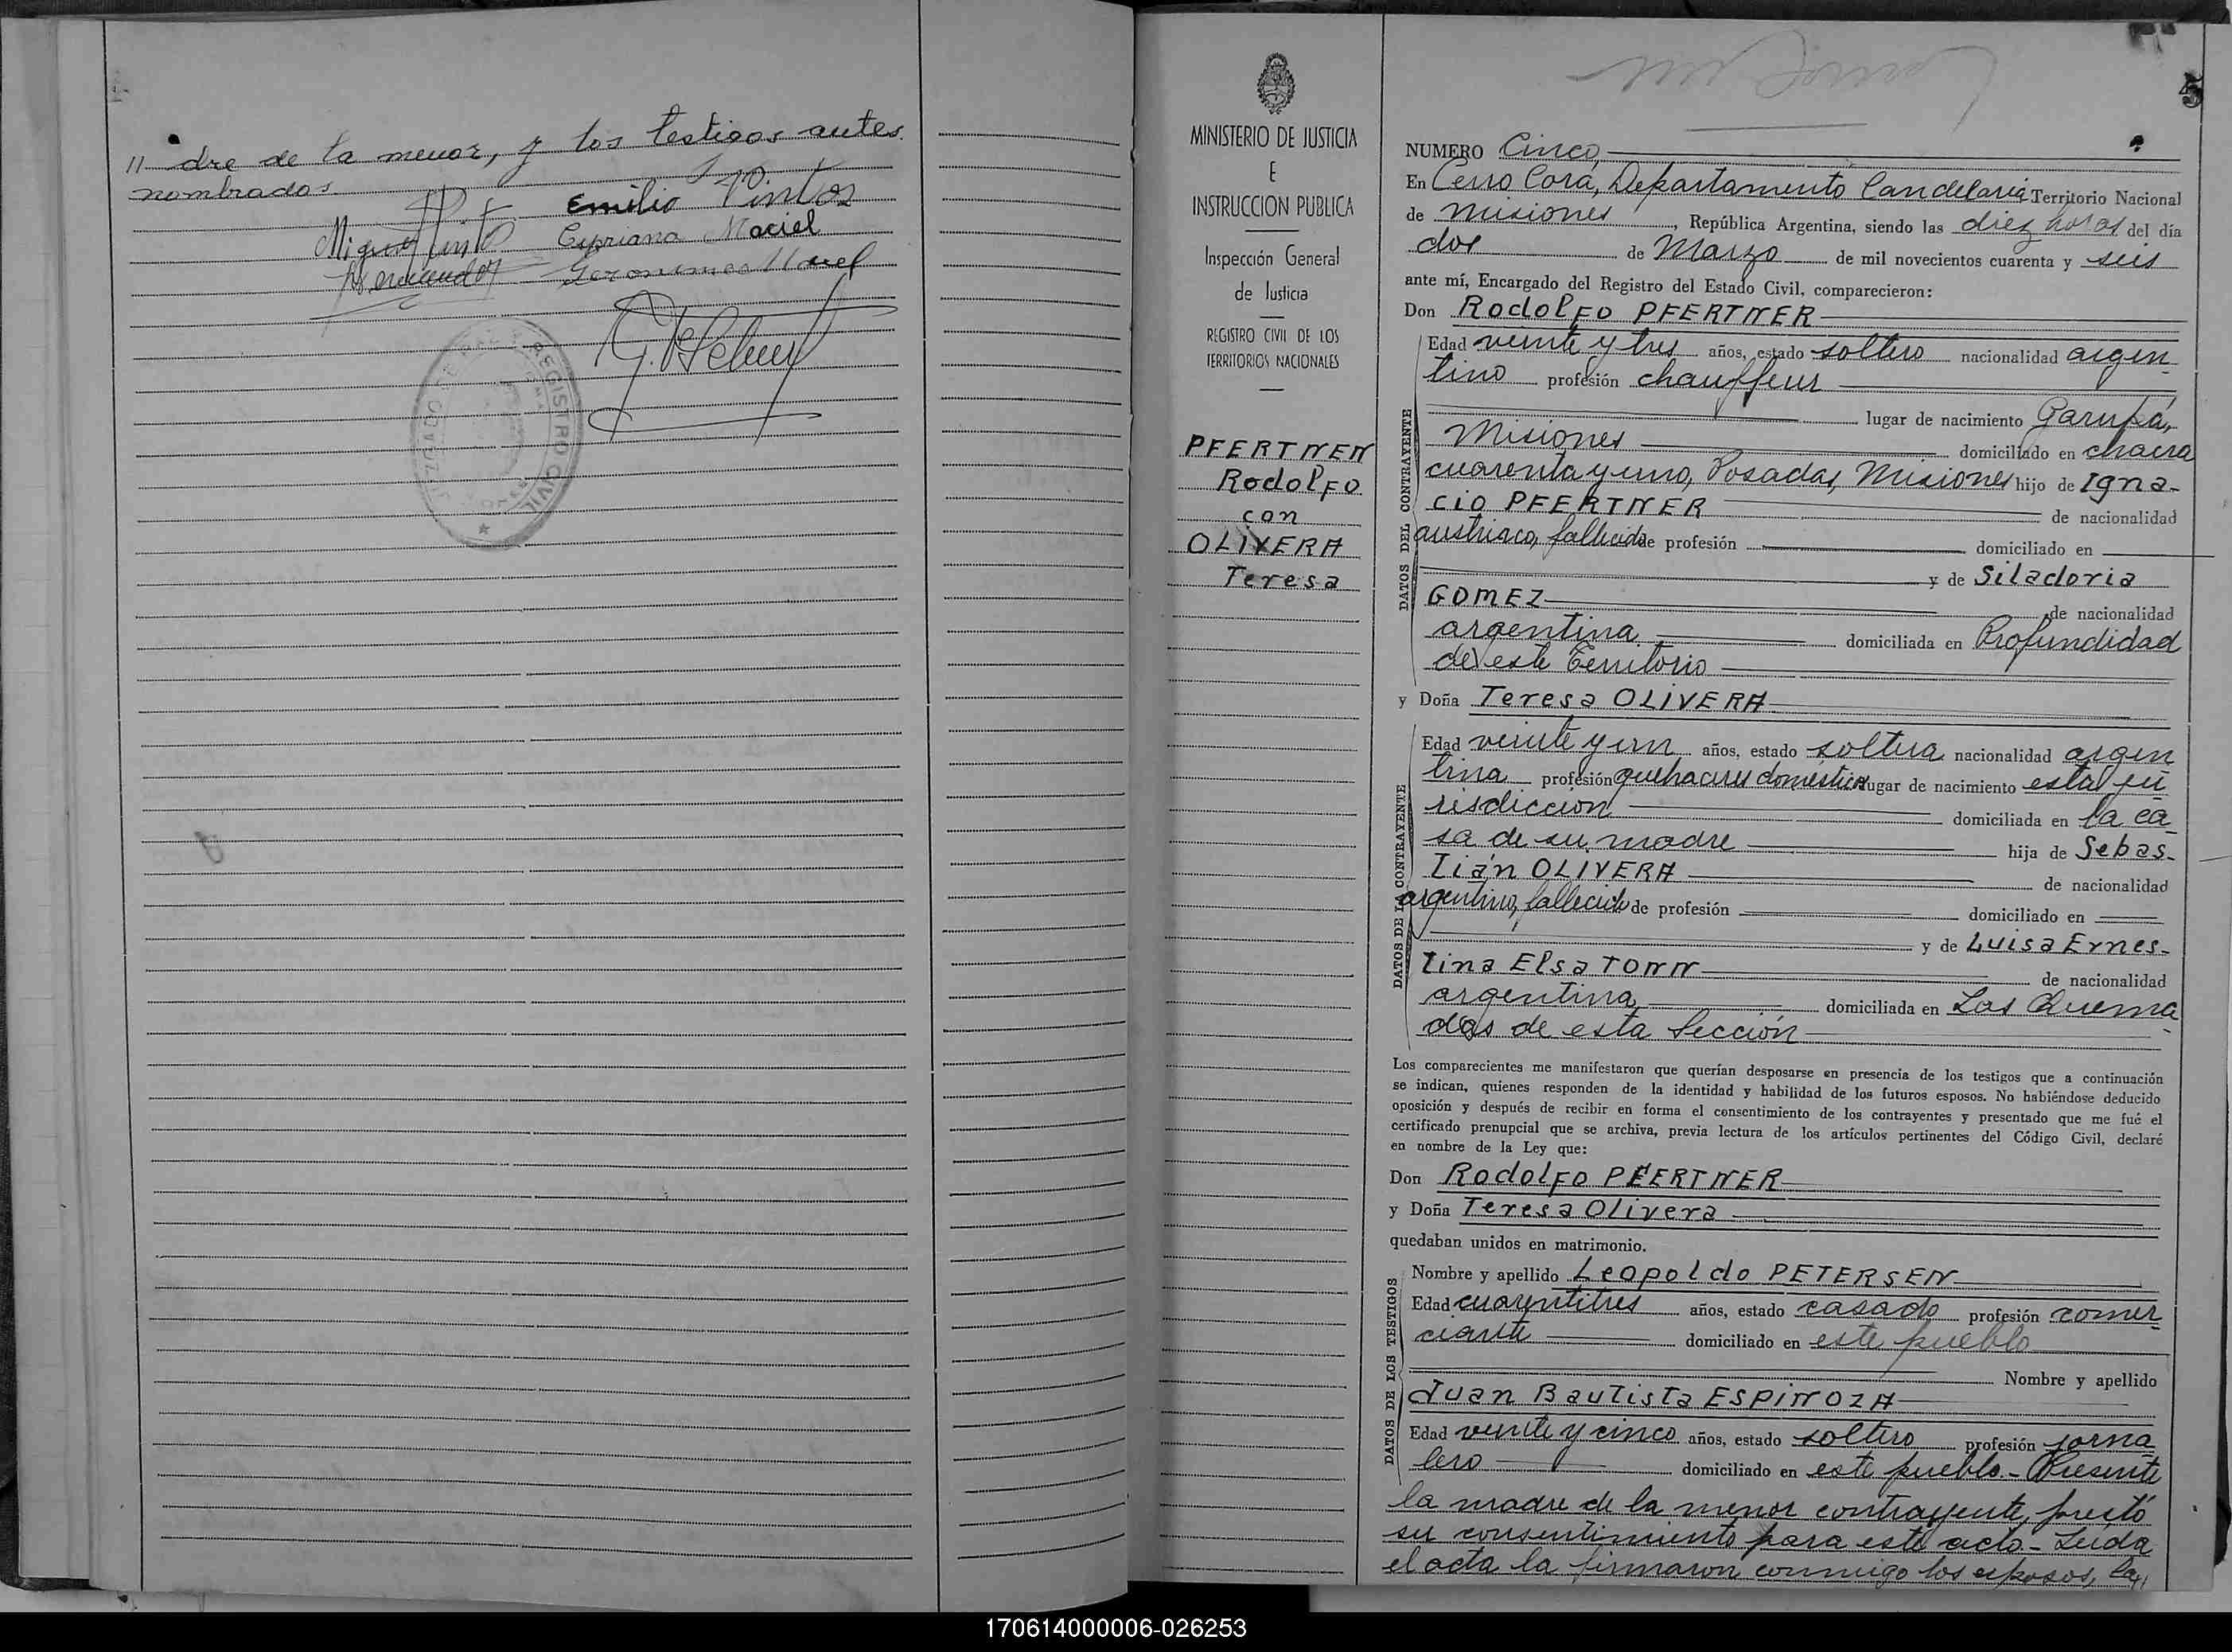 // dre de la menor, y los testigos antes
nombrados.
Emilio Pintos
Miguel Pinto
Cipriana Maciel
Geronimo
REGISTRO CIVIL
5
MINISTERIO DE JUSTICIA
E
INSTRUCCION PUBLICA
Inspección General
de Justicia
REGISTRO CIVIL DE LOS
TERRITORIOS NACIONALES
PFERTNER
Rodolfo
con
OLIVERA
Teresa
NUMERO Cinco
En Cerro Corá, Departamento Candelaria Territorio Nacional
de Misiones, República Argentina, siendo las diez horas del día
dos de Marzo de mil novecientos cuarenta y seis
ante mí, Encargado del Registro del Estado Civil, comparecieron:
Don Rodolfo PFERTNER
DATOS DEL CONTRAYENTE
Edad veinte y tres años, estado soltero nacionalidad argen
tino profesión chauffeur
lugar de nacimiento Garupá,
Misiones domiciliado en chacra
cuarenta y uno, Posadas, Misiones hijo de Igna-
cio PFERTNER de nacionalidad
austriaco, fallecido de profesión domiciliado en
y de Siladoria
GOMEZ de nacionalidad
argentina domiciliada en Profundidad
de este Territorio
y Doña Teresa OLIVERA
DATOS DE LA CONTRAYENTE
Edad veinte y un años, estado soltera nacionalidad argen
tina profesión quehaceres domésticos lugar de nacimiento esta ju
risdiccion domiciliada en la ca
sa de su madre hija de Sebas-
tián OLIVERA de nacionalidad
argentino, fallecido de profesión domiciliado en
y de Luisa Ernes-
tina Elsa TONN de nacionalidad
argentina domiciliada en Las Quema
das de esta Sección
Los comparecientes me manifestaron que querían desposarse en presencia de los testigos que a continuación
se indican, quienes responden de la identidad y habilidad de los futuros esposos. No habiéndose deducido
oposición y después de recibir en forma el consentimiento de los contrayentes y presentado que me fué el
certificado prenupcial que se archiva, previa lectura de los artículos pertinentes del Código Civil, declaré
en nombre de la Ley que:
Don Rodolfo PFERTNER
y Doña Teresa Olivera
quedaban unidos en matrimonio.
DATOS DE LOS TESTIGOS
Nombre y apellido Leopoldo PETERSEN
Edad cuarentitres años, estado casado profesión comer
ciante domiciliado en este pueblo
Nombre y apellido
Juan Bautista ESPINOZA
Edad veinte y cinco años, estado soltero profesión jorna
lero domiciliado en este pueblo.- Presente
la madre de la menor contrayente, prestó
su consentimiento para este acto.- Leida
el acta la firmaron conmigo los esposos, la //
170614000006-026253